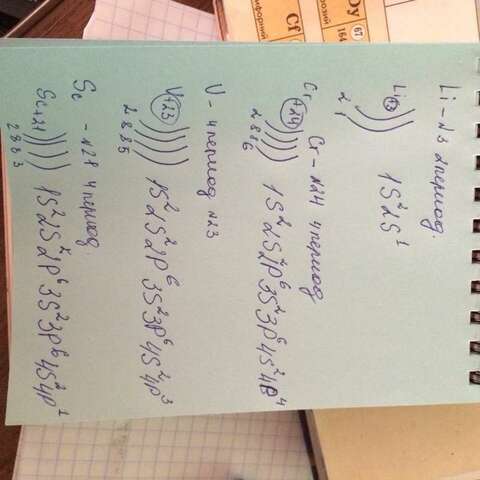 Li - №3 2период.
Li +3 ))
2 1
1S²2S¹
Cr - №24 4период
Cr +24 ))))
2 8 8 6
1S²2S²2P⁶3S²3P⁶4S²4P⁴
V - 4период №23
V +23 ))))
2 8 8 5
1S²2S²2P⁶3S²3P⁶4S²4P³
Sc - №21 4период.
Sc +21 ))))
2 8 8 3
1S²2S²2P⁶3S²3P⁶4S²4P¹
Cf
Dy
67
164